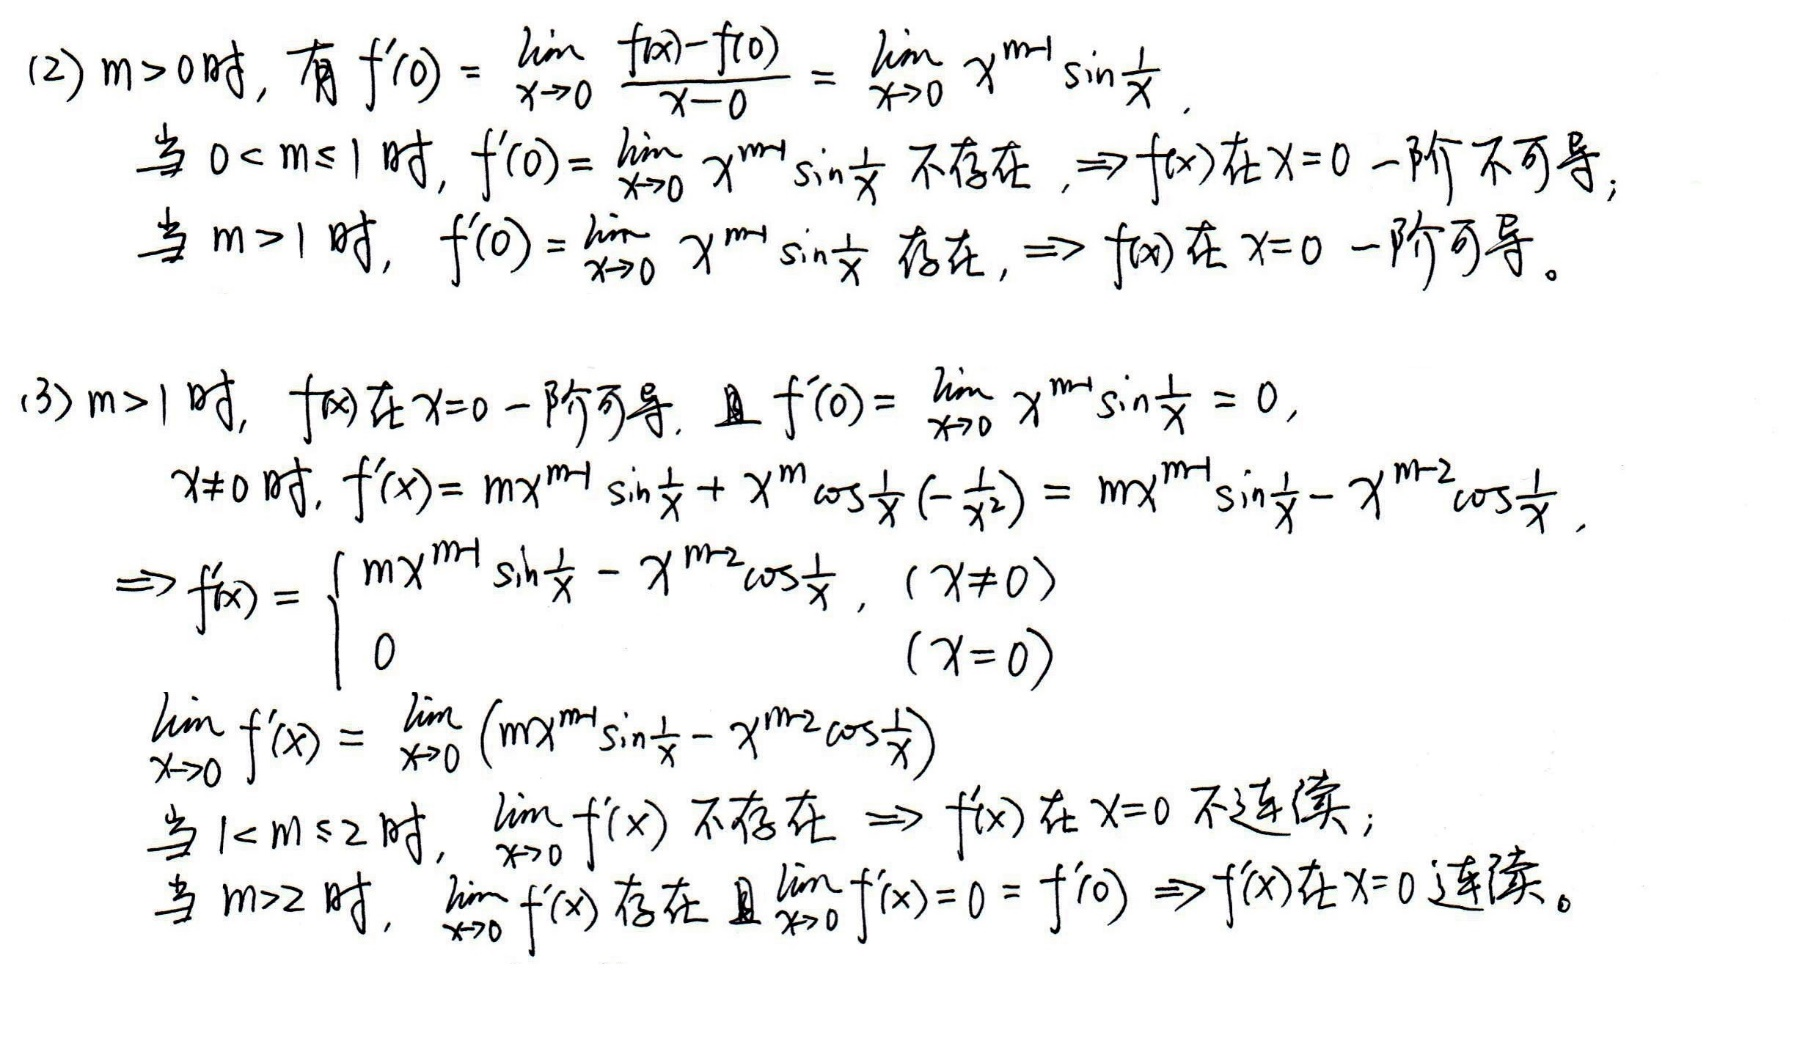 (2) m>0时, 有 f'(0) = lim_{x→0} \frac{f(x)-f(0)}{x-0} = lim_{x→0} x^{m-1} sin\frac{1}{x}.
当 0<m≤1 时, f'(0) = lim_{x→0} x^{m-1} sin\frac{1}{x} 不存在, ⇒ f(x)在 x=0 一阶不可导;
当 m>1 时, f'(0) = lim_{x→0} x^{m-1} sin\frac{1}{x} 存在, ⇒ f(x) 在 x=0 一阶可导。
(3) m>1 时, f(x)在 x=0 一阶可导, 且 f'(0) = lim_{x→0} x^{m-1} sin\frac{1}{x} = 0,
x≠0 时, f'(x) = mx^{m-1} sin\frac{1}{x} + x^m cos\frac{1}{x}(-\frac{1}{x^2}) = mx^{m-1} sin\frac{1}{x} - x^{m-2} cos\frac{1}{x},
⇒ f'(x) = { mx^{m-1} sin\frac{1}{x} - x^{m-2} cos\frac{1}{x}, (x≠0)
0 (x=0)
lim_{x→0} f'(x) = lim_{x→0} (mx^{m-1} sin\frac{1}{x} - x^{m-2} cos\frac{1}{x})
当 1<m≤2 时, lim_{x→0} f'(x) 不存在 ⇒ f'(x) 在 x=0 不连续;
当 m>2 时, lim_{x→0} f'(x) 存在 且 lim_{x→0} f'(x) = 0 = f'(0) ⇒ f'(x)在 x=0 连续。